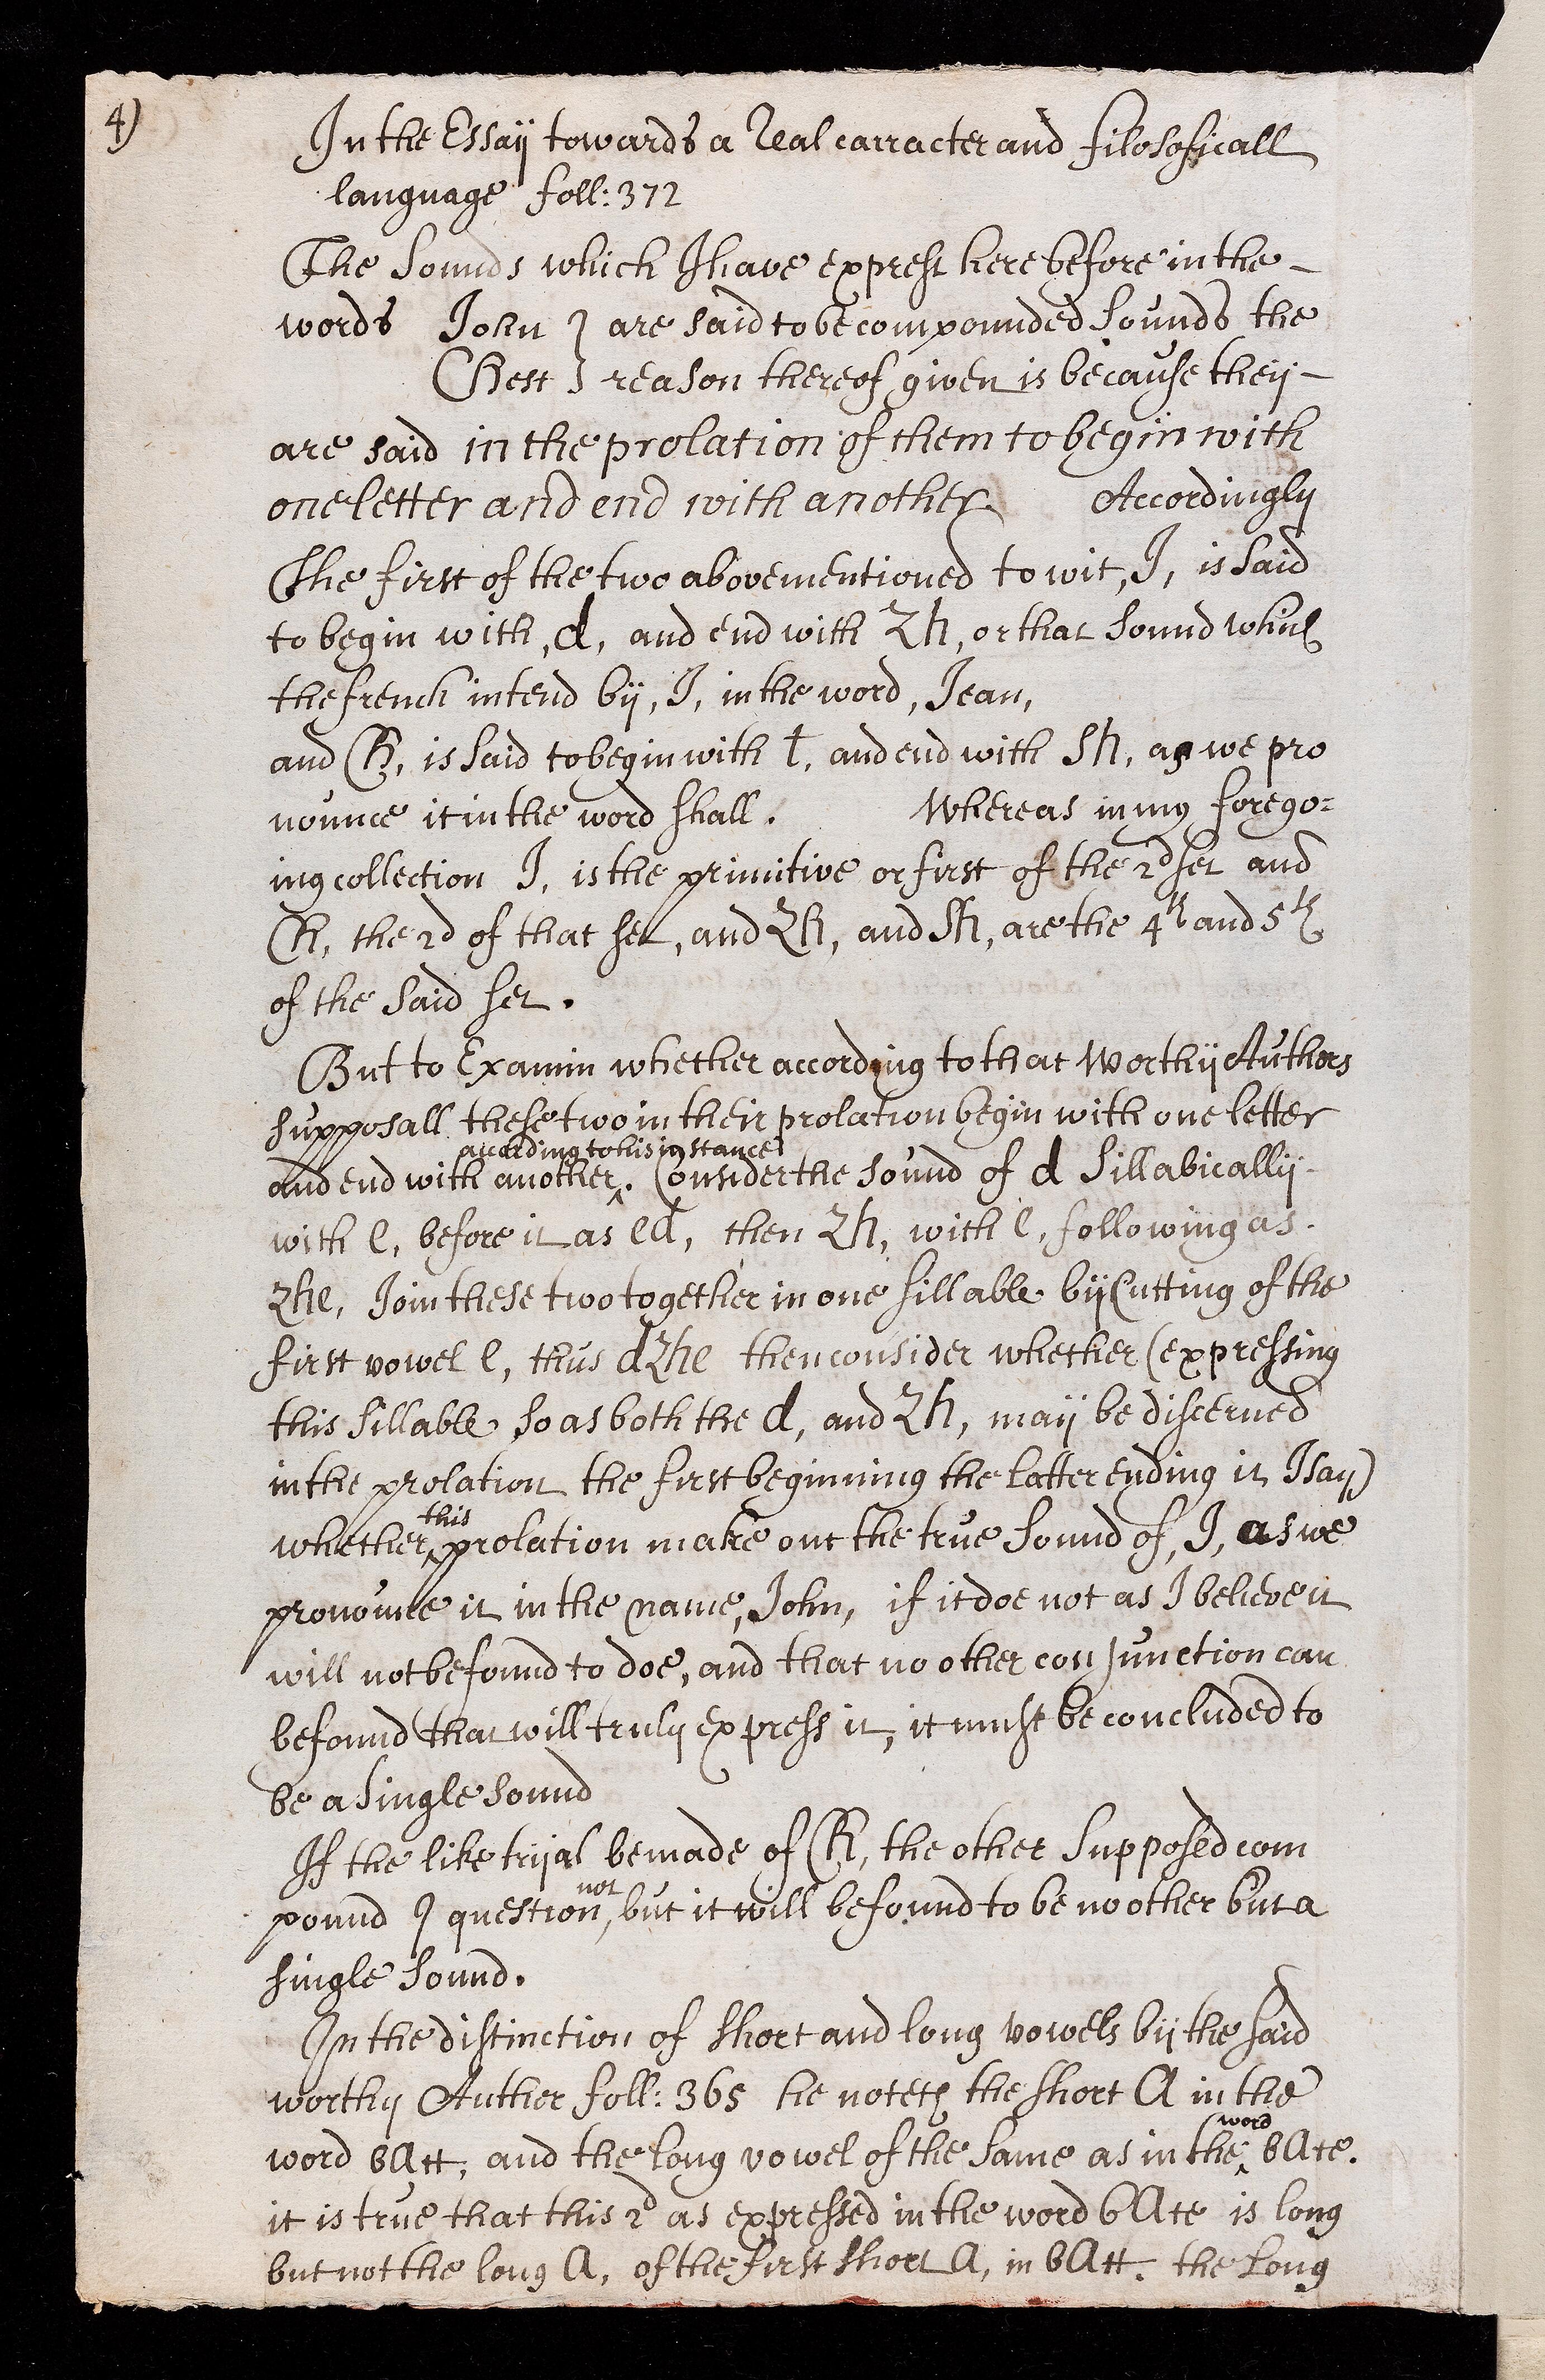 4)
In the Essaÿ towards a Real carracter and filosoficall
language foll: 372
The Sounds which I have exprest here before in the
words John } are said to be compounded sounds the
Chest } reason thereof given is because theÿ
are said in the prolation of them to begin with
one letter and end with another. Accordinglÿ
The first of the two abovementioned to wit, J, is said
to begin with, d, and end with Zh, or that sound which
the french intend bÿ, J, in the word, Jean,
and Ch, is said to begin with t, and end with Sh, as we pro
nounce it in the word shall. Whereas in mÿ forego=
ing collection J, is the primitive or first of the 2d set and
Ch, the 2d of that set, and Zh, and Sh, are the 4th and 5th
of the said set.
But to Examin whether according to that Worthÿ Authors
supposall these two in their prolation begin with one letter
according to his instance
and end with another ^. Consider the sound of d Sillabicallÿ
with e, before it as ed, then Zh, with e, following as
Zhe, Join these two together in one sillable bÿ Cutting of the
first vowel e, thus dZhe then consider whether (expressing
this sillable so as both the d, and Zh, maÿ be discerned
in the prolation the first beginning the latter ending it I saÿ)
this
whether ^ prolation make out the true sound of, J, as we
pronounce it in the name, John, if it doe not as I believe it
will not be found to doe, and that no other conjunction can
be found that will trulÿ express it, it must be concluded to
be a single sound
If the like trÿal be made of Ch, the other supposed com
not
pound I question, but it will be found to be no other but a
single sound.
In the distinction of short and long vowels bÿ the said
worthÿ Auther foll: 365 he noteth the short A in the
word
word bAtt, and the long vowel of the same as in the ^ bAte.
it is true that this 2d as expressed in the word bAte is long
but not the long A, of the first short A, in bAtt. the Long